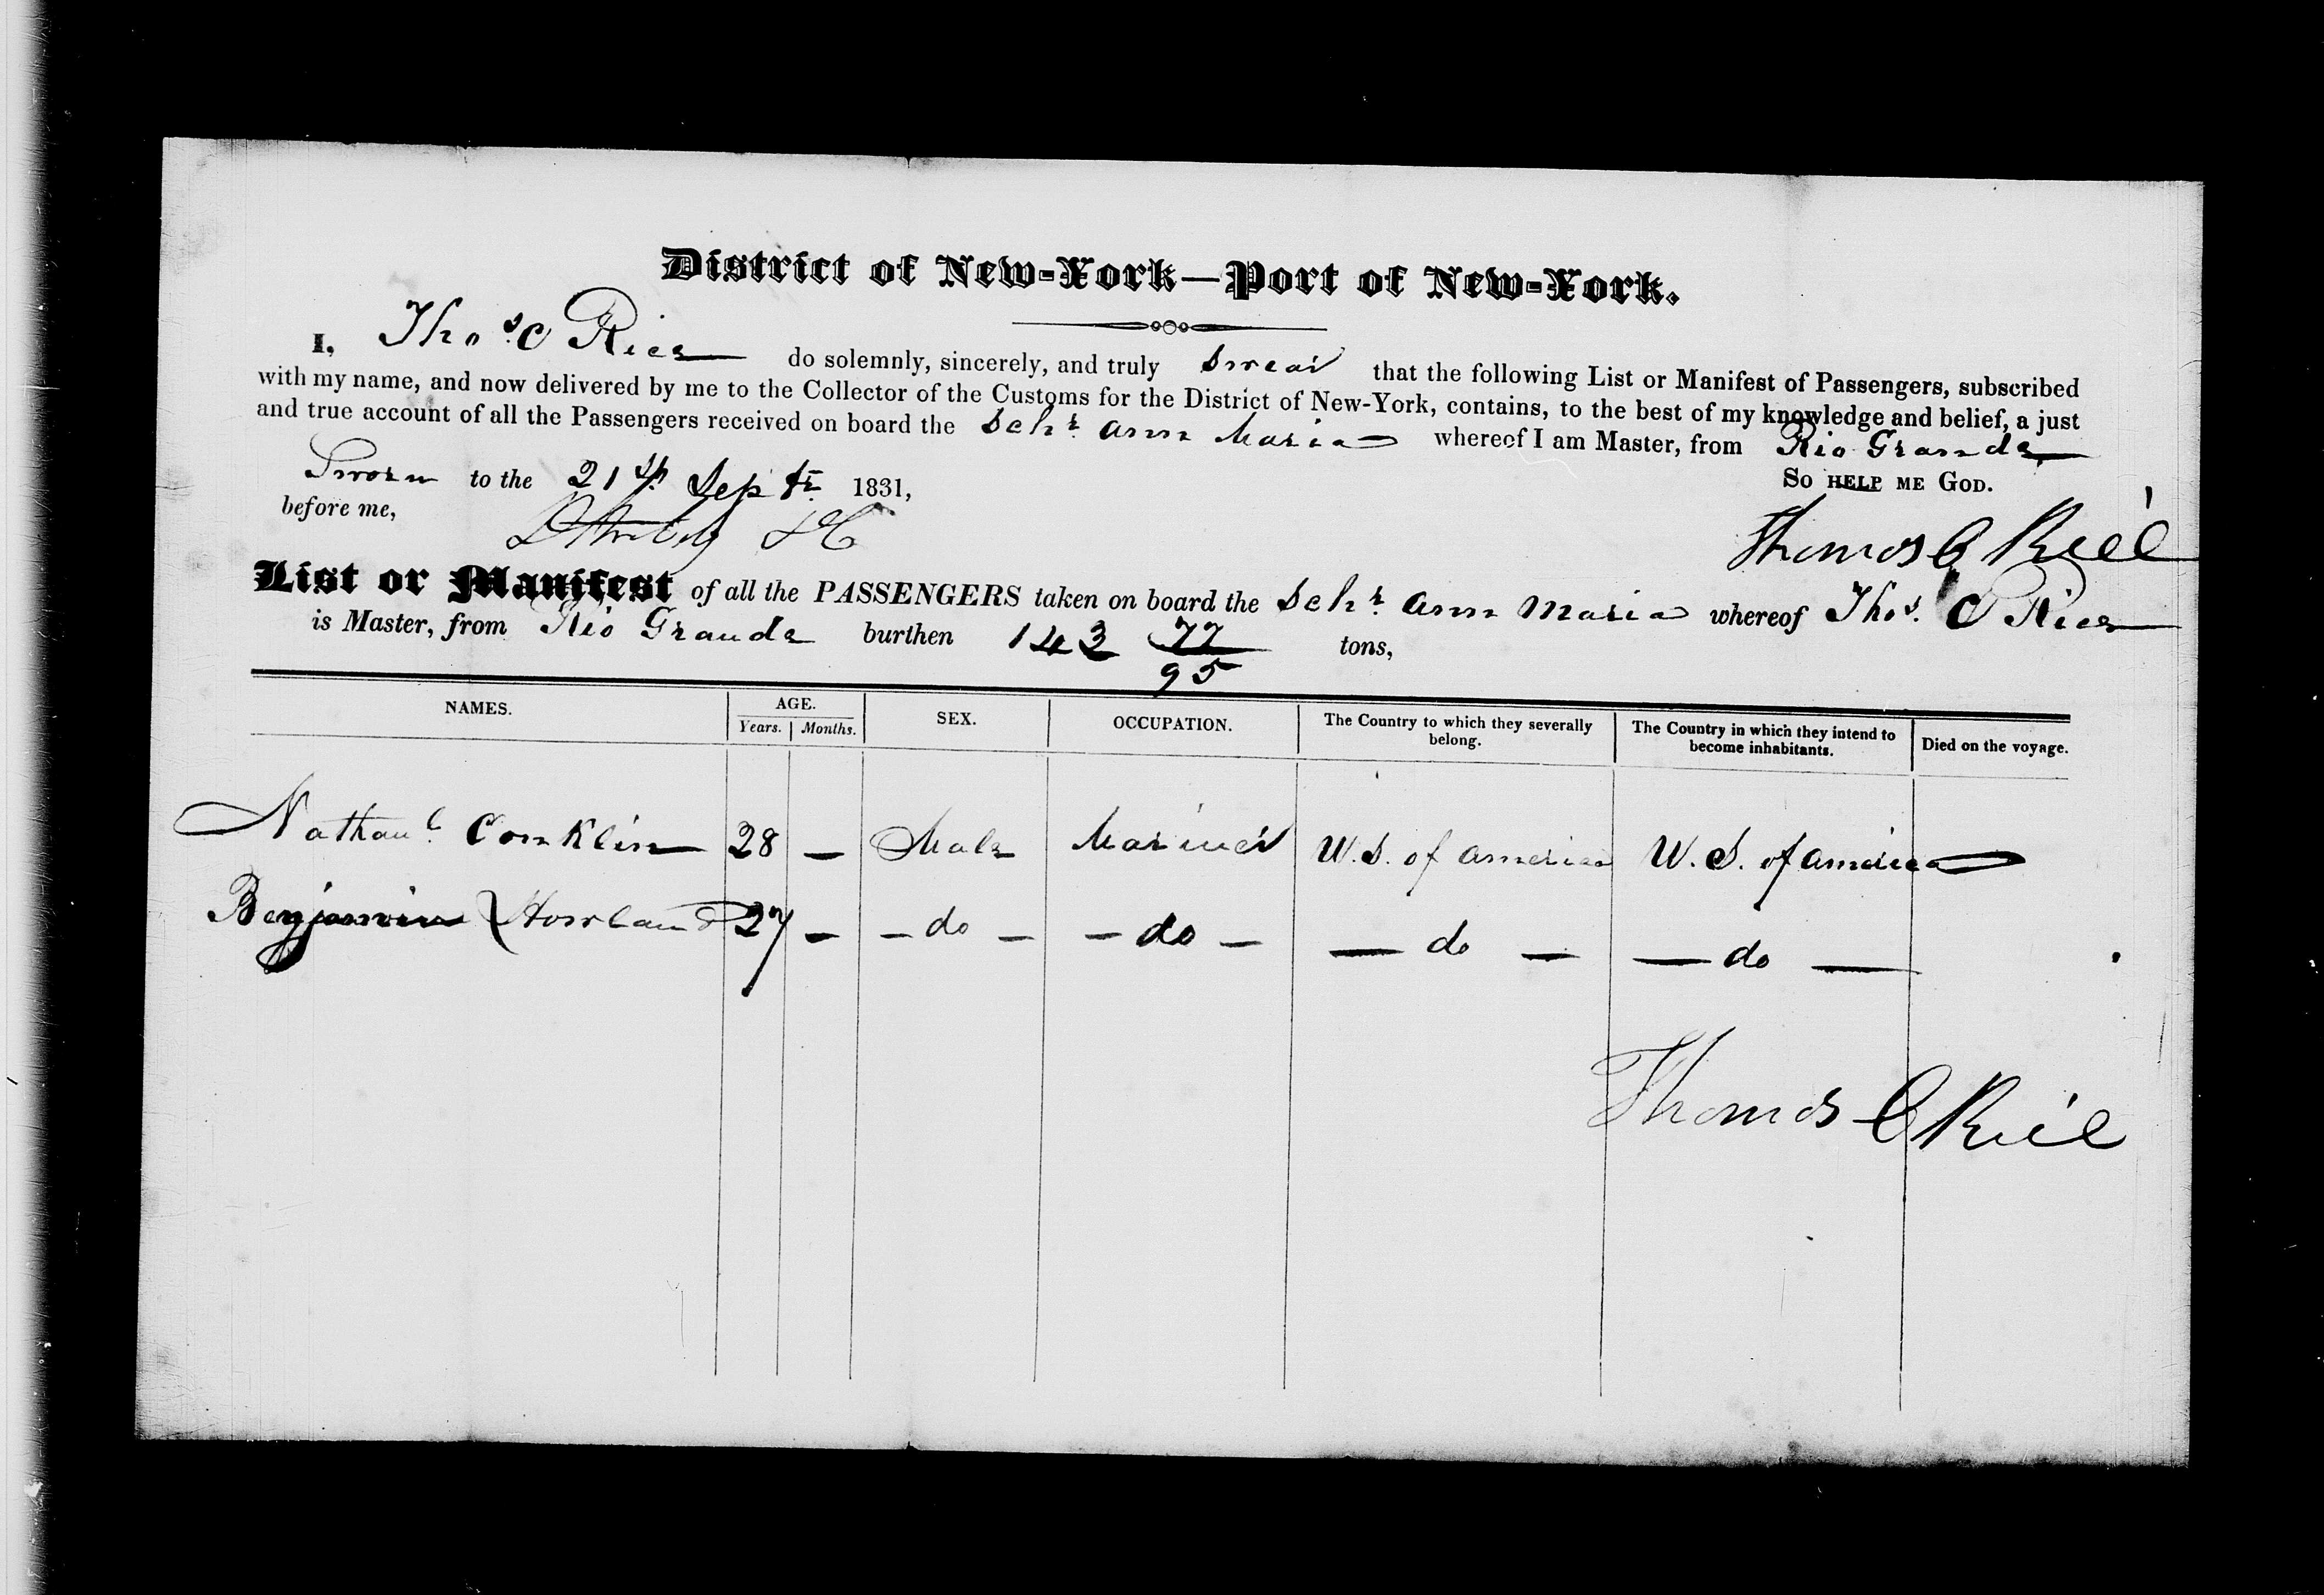 District of New-York—Port of New-York.
I, Thos. C Rice do solemnly, sincerely, and truly swear that the following List or Manifest of Passengers, subscribed
with my name, and now delivered by me to the Collector of the Customs for the District of New-York, contains, to the best of my knowledge and belief, a just
and true account of all the Passengers received on board the Schr. Ann Maria whereof I am Master, from Rio Grande
So HELP ME GOD.
Sworn to the 21st Septr. 1831,
before me,
Thomas C Rice
List or Manifest of all the PASSENGERS taken on board the Schr. Ann Maria whereof Thos. C Rice
is Master, from Rio Grande burthen 143 77/95 tons,
NAMES. AGE. SEX. OCCUPATION. The Country to which they severally belong. The Country in which they intend to become inhabitants. Died on the voyage.
Years. Months.
Nathanl. Conklin 28 — Male Mariner U.S. of America U.S. of America —
Benjamin Howland 27 — — do — — do — — do — — do —
Thomas C Rice